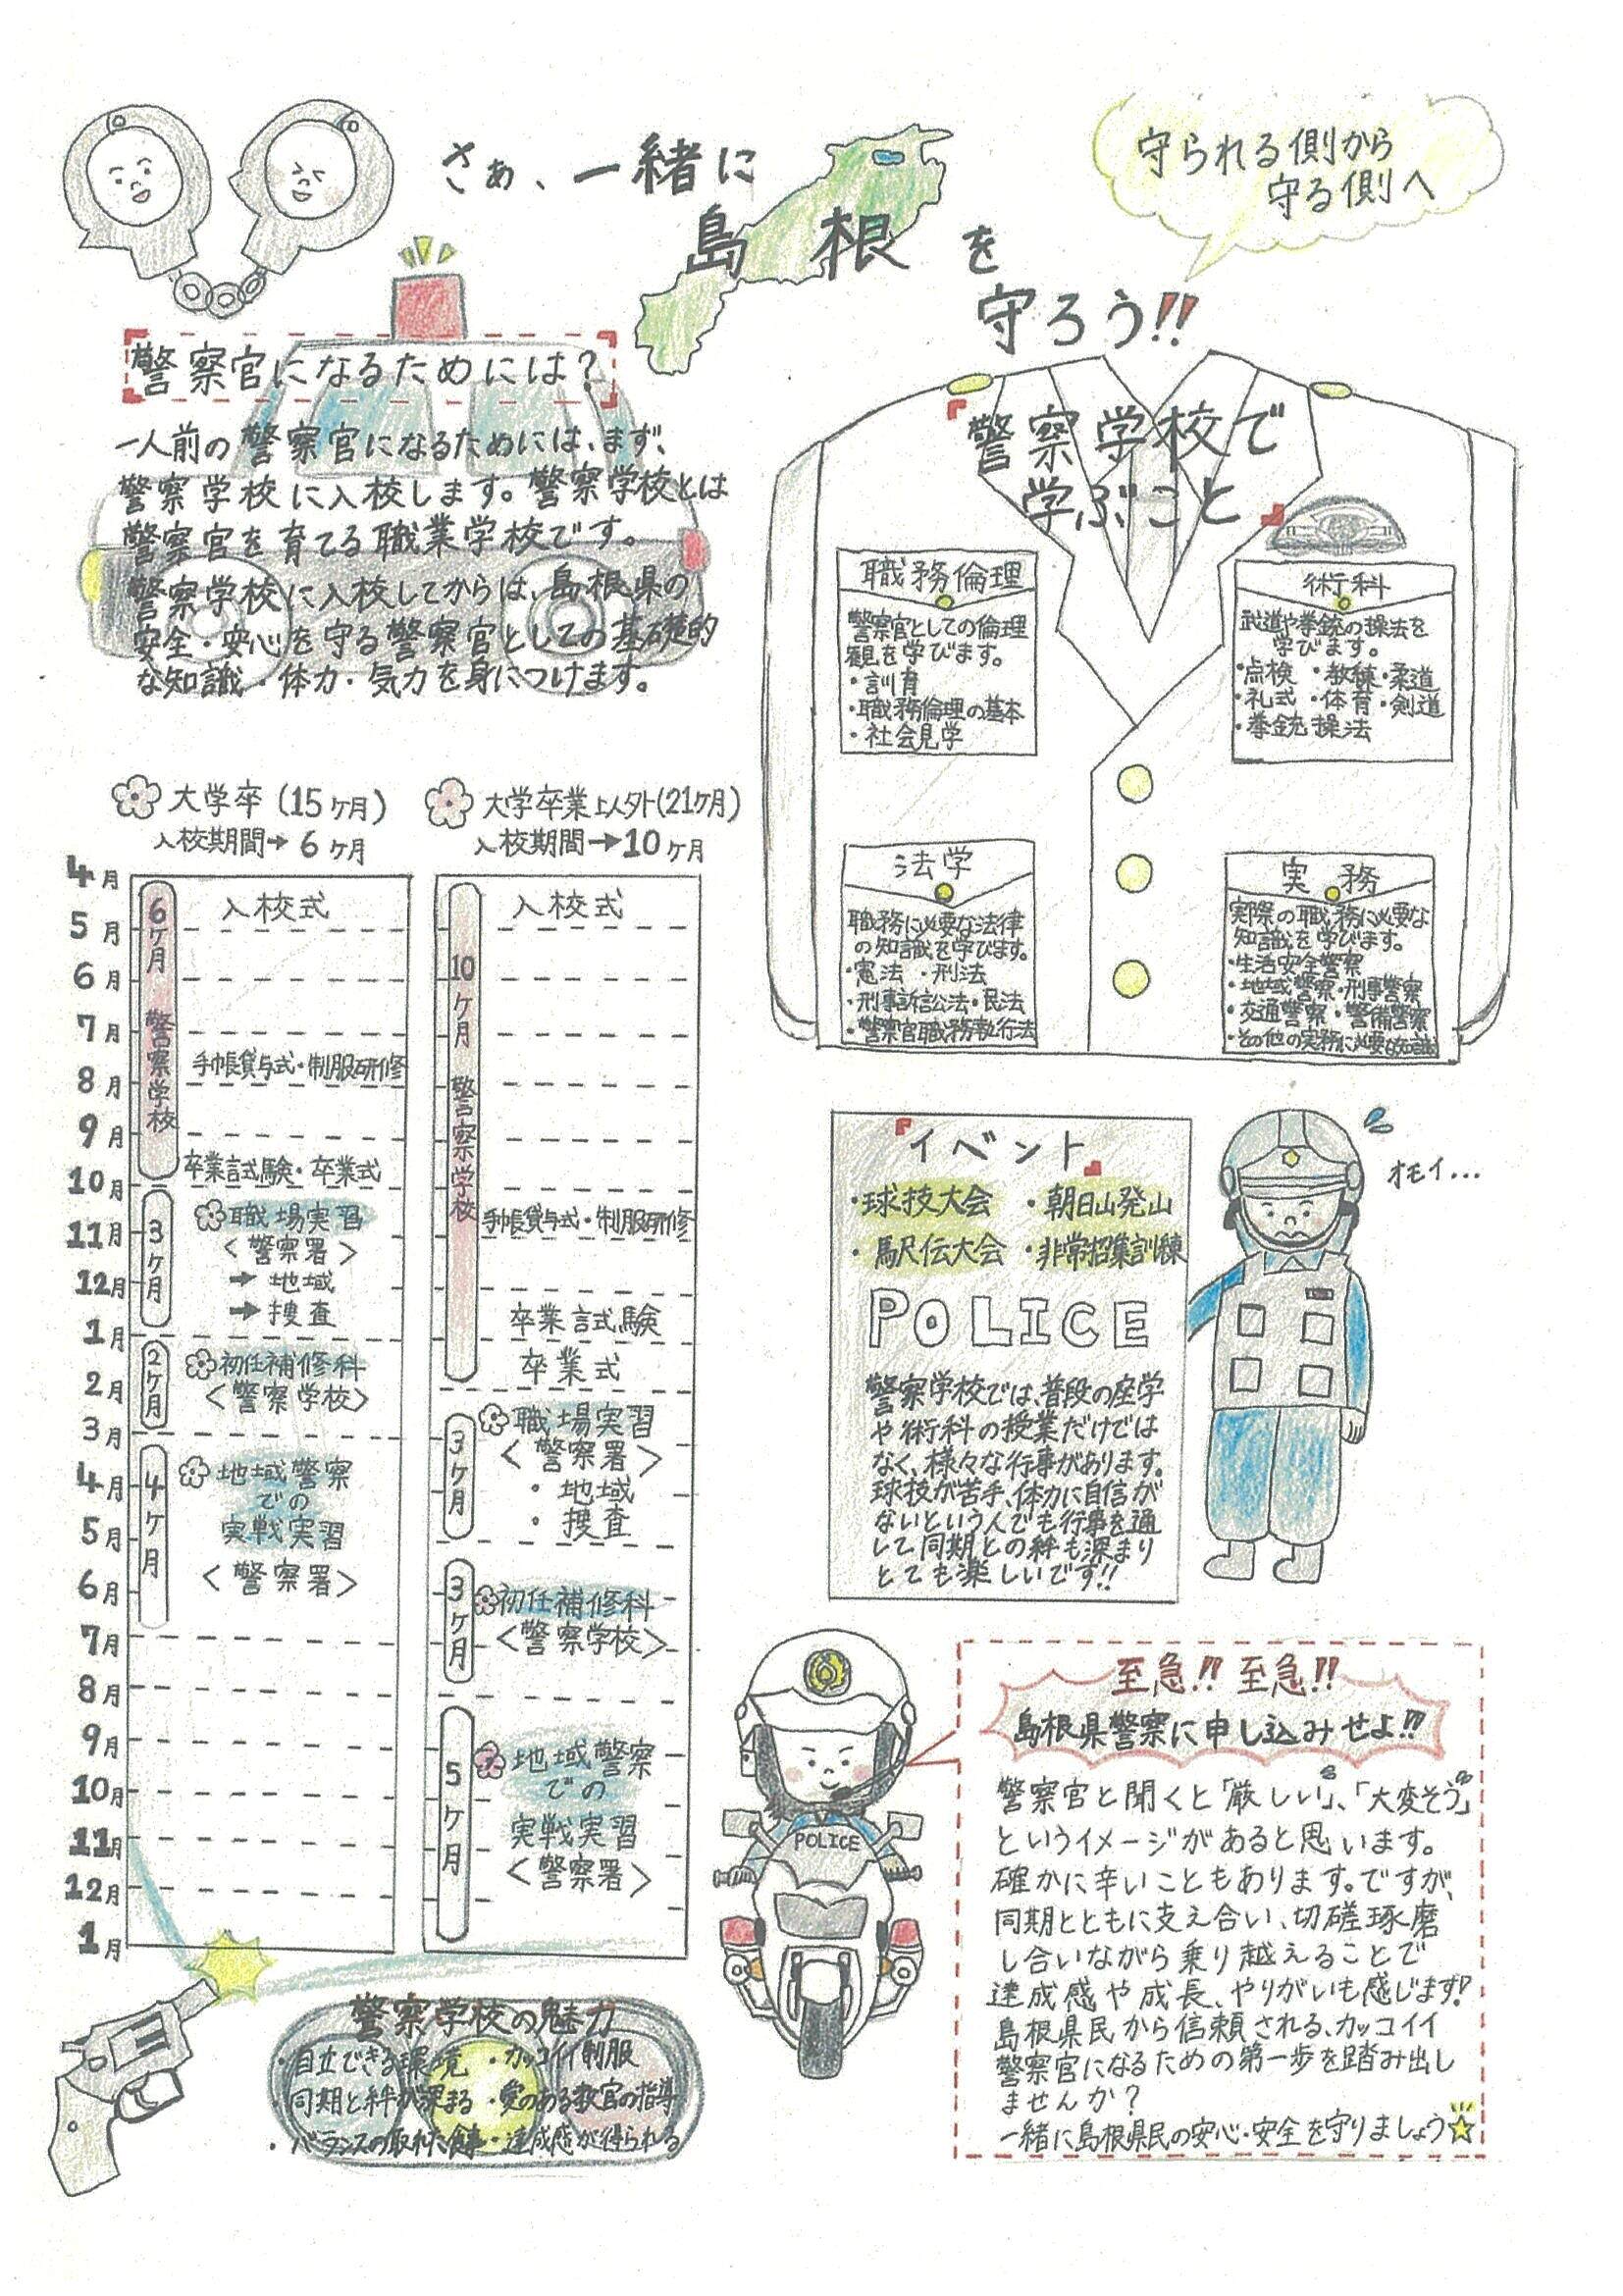 さぁ、一緒に
島根を
守ろう!!
守られる側から
守る側へ
警察官になるためには?
一人前の警察官になるためには、まず、
警察学校に入校します。警察学校とは
警察官を育てる職業学校です。
警察学校に入校してからは、島根県の
安全・安心を守る警察官としての基礎的
な知識・体力・気力を身につけます。
「警察学校で
学ぶこと」
職務倫理
警察官としての倫理
観を学びます。
・訓育
・職務倫理の基本
・社会見学
術科
武道や拳銃の操法を
学びます。
・点検 ・教練・柔道
・礼式 ・体育・剣道
・拳銃操法
法学
職務に必要な法律
の知識を学びます。
・憲法 ・刑法
・刑事訴訟法・民法
・警察官職務執行法
実務
実際の職務に必要な
知識を学びます。
・生活安全警察
・地域警察・刑事警察
・交通警察・警備警察
・その他の実務に必要な知識
大学卒(15ヶ月)
入校期間→6ヶ月
大学卒業以外(21ヶ月)
入校期間→10ヶ月
4月
5月
6月
7月
8月
9月
10月
11月
12月
1月
2月
3月
4月
5月
6月
7月
8月
9月
10月
11月
12月
1月
6ヶ月 警察学校
入校式
手帳貸与式・制服研修
卒業試験・卒業式
3ヶ月
職場実習
<警察署>
→地域
→捜査
2ヶ月
初任補修科
<警察学校>
4ヶ月
地域警察
での
実戦実習
<警察署>
10ヶ月 警察学校
入校式
手帳貸与式・制服研修
卒業試験
卒業式
3ヶ月
職場実習
<警察署>
・地域
・捜査
3ヶ月
初任補修科
<警察学校>
5ヶ月
地域警察
での
実戦実習
<警察署>
「イベント」
・球技大会 ・朝日山発山
・駅伝大会 ・非常招集訓練
POLICE
警察学校では、普段の座学
や術科の授業だけでは
なく、様々な行事があります。
球技が苦手、体力に自信が
ないという人でも行事を通
して、同期との絆も深まり
とても楽しいです!!
オモイ...
POLICE
至急!! 至急!!
島根県警察に申し込みせよ!!
警察官と聞くと「厳しい」、「大変そう」
というイメージがあると思います。
確かに辛いこともあります。ですが、
同期とともに支え合い、切磋琢磨
し合いながら乗り越えることで
達成感や成長、やりがいも感じます!
島根県民から信頼される、カッコイイ
警察官になるための第一歩を踏み出し
ませんか?
一緒に島根県民の安心・安全を守りましょう☆
警察学校の魅力
・自立できる環境 ・カッコイイ制服
・同期と絆が深まる ・愛のある教官の指導
・バランスの取れた食事・達成感が得られる